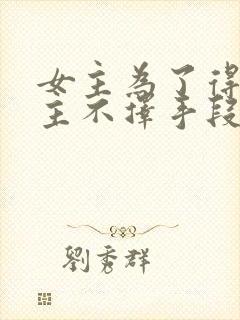 女主為了得
主不擇手段
劉秀群